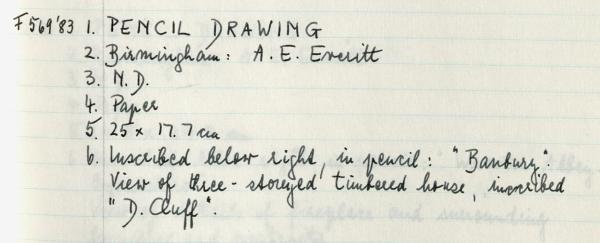 F569'83 1. PENCIL DRAWING
2. Birmingham: A. E. Everitt
3. N.D.
4. Paper
5. 25 × 17.7 cm
6. Inscribed below right, in pencil: "Banbury".
View of three-storeyed timbered house, inscribed
"D. Cluff".